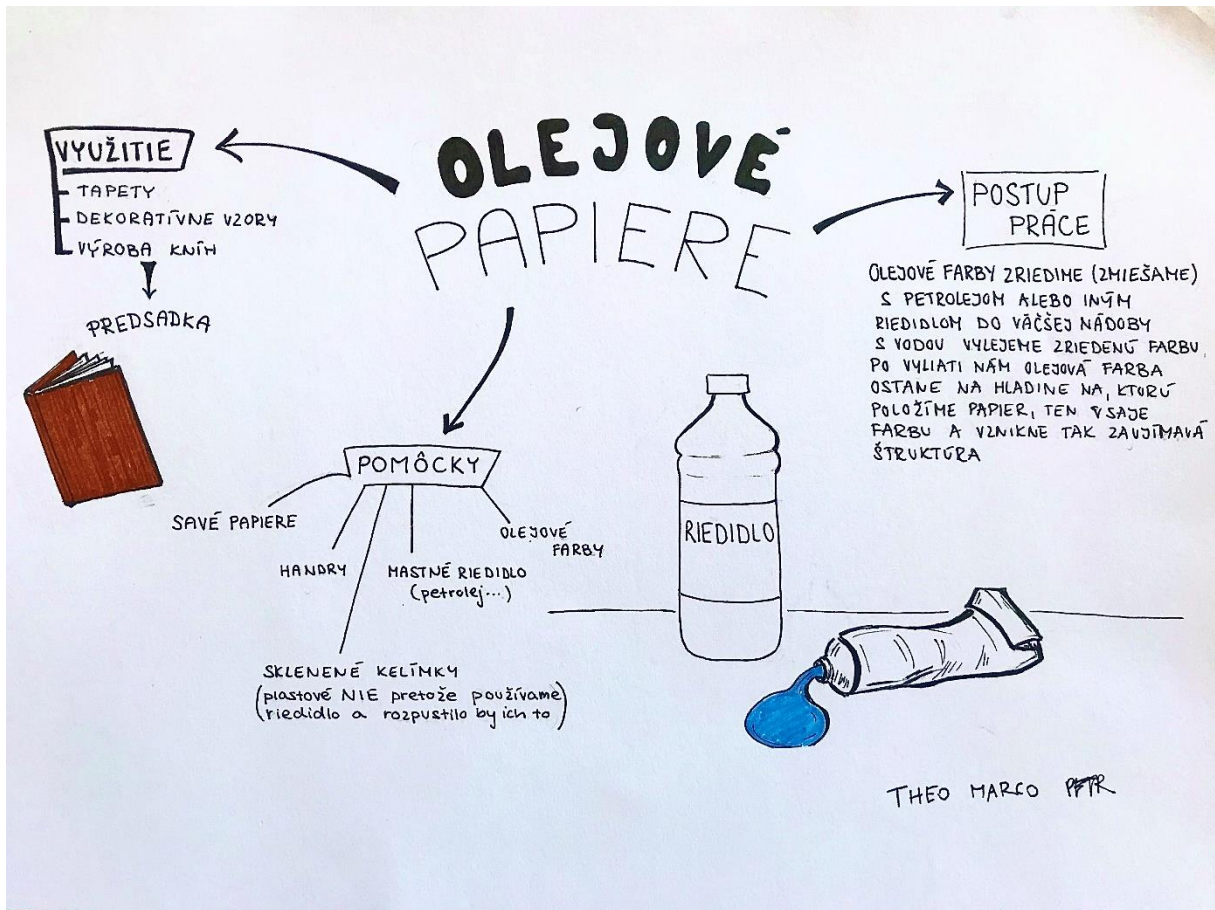 OLEJOVÉ
PAPIERE
VYUŽITIE
TAPETY
DEKORATÍVNE VZORY
VÝROBA KNÍH
PREDSADKA
POSTUP
PRÁCE
OLEJOVÉ FARBY ZRIEDIME (ZMIEŠAME)
S PETROLEJOM ALEBO INÝM
RIEDIDLOM DO VÄČŠEJ NÁDOBY
S VODOU VYLEJEME ZRIEDENÚ FARBU,
PO VYLIATI NÁM OLEJOVÁ FARBA
OSTANE NA HLADINE NA, KTORÚ
POLOŽÍME PAPIER, TEN VSAJE
FARBU A VZNIKNE TAK ZAUJÍMAVÁ
ŠTRUKTÚRA
POMÔCKY
SAVÉ PAPIERE
HANDRY
MASTNÉ RIEDIDLO
(petrolej...)
OLEJOVÉ
FARBY
SKLENENÉ KELÍMKY
(plastové NIE pretože používame
riedidlo a rozpustilo by ich to)
RIEDIDLO
THEO MARCO